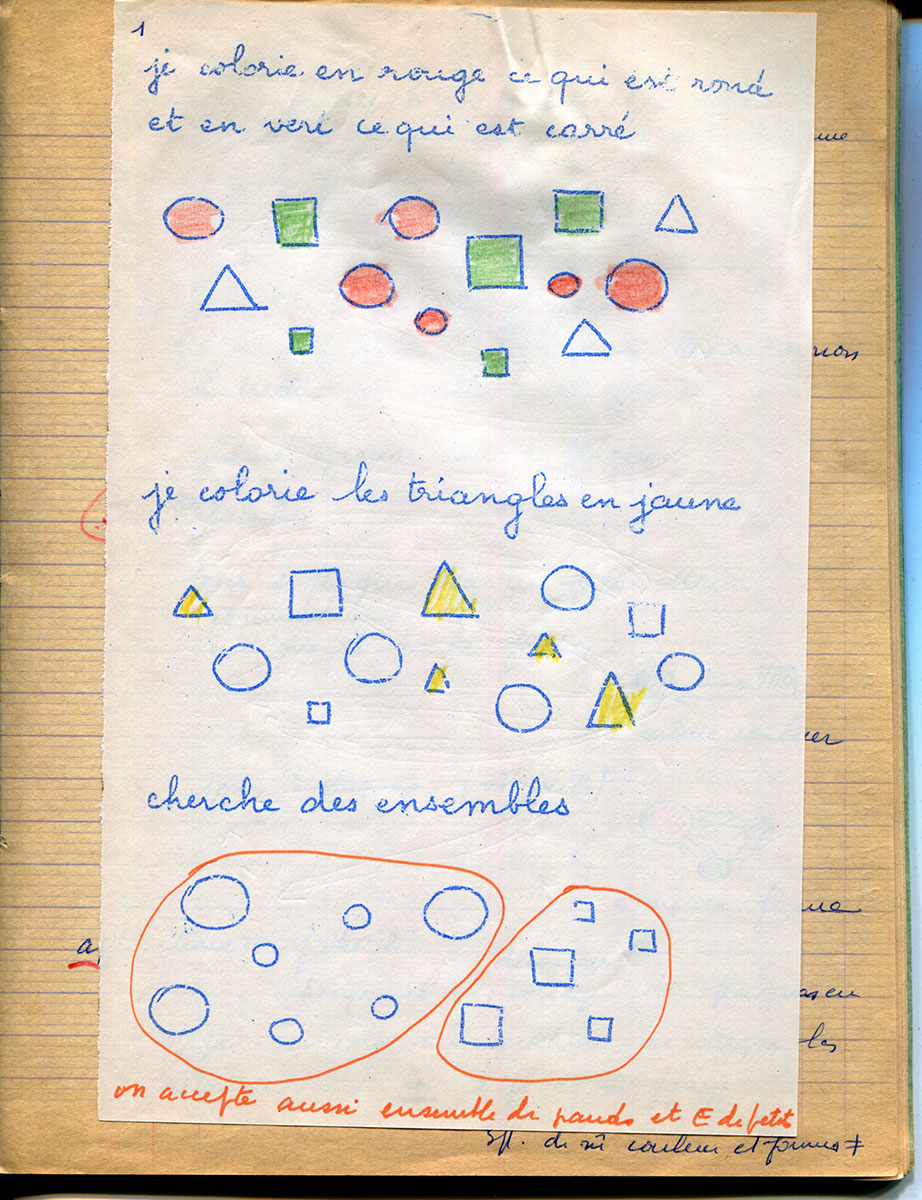 1
je colorie en rouge ce qui est rond
et en vert ce qui est carré
je colorie les triangles en jaune
cherche des ensembles
on accepte aussi ensemble de grands et E de petit
de couleur et formes ≠